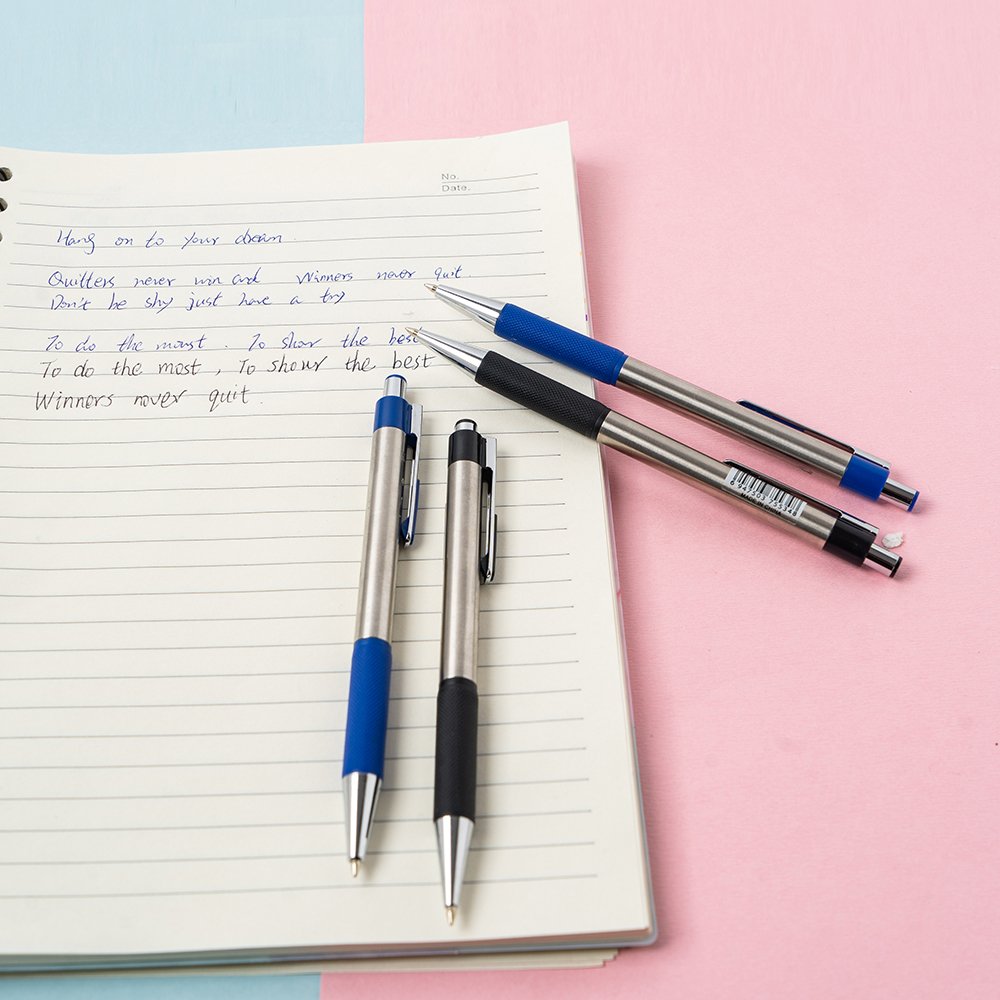 No.
Date.
Hang on to your dream.
Quitters never win and Winners never quit.
Don't be shy just have a try
To do the moust. To show the best
To do the most, To show the best
Winners never quit.
6 947503 755348
MADE IN CHINA